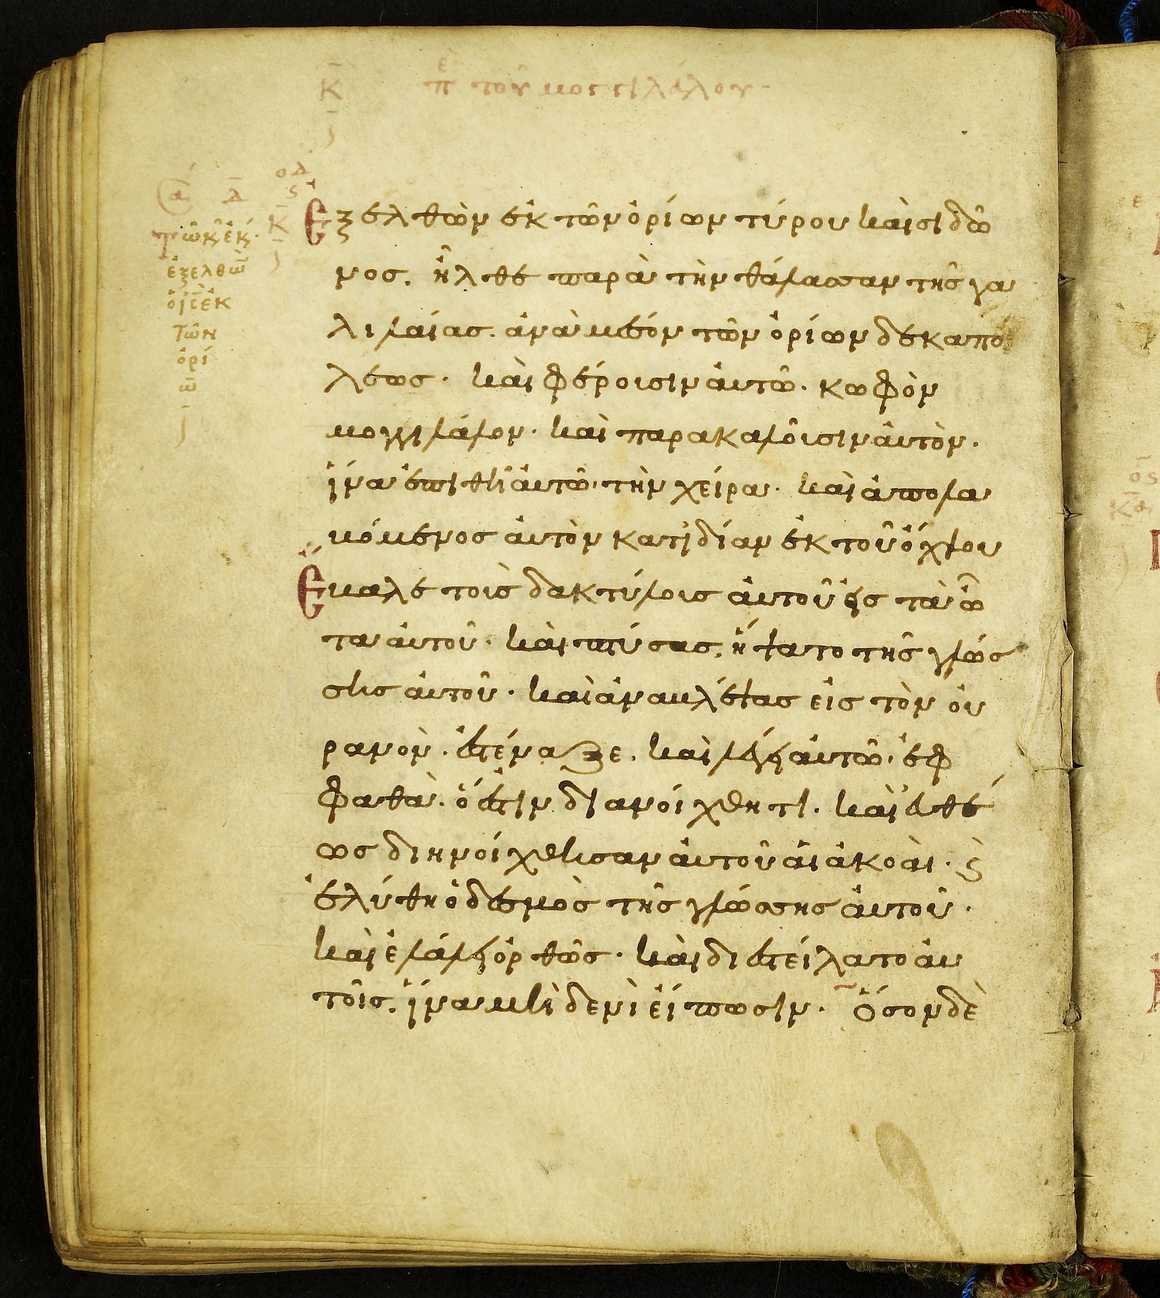 κ
π̅ε τοῦ μογγιλάλου
ἐξελθὼν ἐκ τῶν ὁρίων τύρου καὶ σιδῶ
νος. ἦλθε παρὰ τὴν θάλασσαν τῆς γα
λιλαίας. ἀνὰ μέσον τῶν ὁρίων δεκαπό
λεως· καὶ φέρουσιν αὐτῶ· κωφὸν
μογγιλάλον· καὶ παρακαλοῦσιν αὐτὸν·
ἵνα ἐπιθῆ αὐτῶ· τὴν χεῖρα· καὶ ἀπολα
βόμενος αὐτὸν κατϊδίαν ἐκ τοῦ ὄχλου
ἔβαλε τοὺς δακτύλους αὐτοῦ εἰς τὰ ὦ
τα αὐτοῦ· καὶ πτύσας, ἥψατο τῆς γλώσ
σης αὐτοῦ· καὶ ἀναβλέψας εἰς τὸν οὐ
ρανὸν· ἐστέναξε. καὶ λέγει αὐτῶ· ἐφ
φαθὰ· ὅ ἐστιν διανοίχθητι· καὶ εὐθέ
ως διηνοίχθησαν αὐτοῦ αἱ ἀκοαὶ· ϗ
ἐλύθη ὁ δεσμὸς τῆς γλώσσης αὐτοῦ·
καὶ ἐλάλει ὀρθῶς· καὶ διεστείλατο αὐ
τοῖς. ἵνα μὴ δενὶ εἴπωσιν· Ὅσον δὲ
τῶ κ ἐκ·
ἐξελθὼ
ὁ ι̅ς̅ ἐκ
τῶν
ὁρί
ω̅